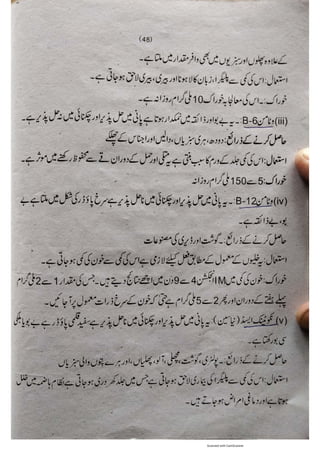 (48)
کے علاوہ پھلوں اور سبزیوں میں بھی وافر مقدار میں ملتا ہے۔
استعمال: اس کی کمی سے پلیگرا، زبان کا کالا ہونا اور بیری، بیری لاحق ہو جاتی ہے۔
خوراک:۔ اس کی معالجانہ خوراک 10 ملی گرام روزانہ ہے۔
(iii) وٹامن B-6:۔ یہ بے بو اور ذائقہ میں نمکدار ہوتا ہے پانی میں حل پذیر اور چکنائی میں نہ حل پذیر ہے۔
حاصل کرنے کے ذرائع: دودھ، ہری سبزیاں، دالیں اور اجناس کے چھلکے
استعمال: اس کی کمی جلد کے ورم کا سبب بنتی ہے متلی اور حمل کے دوران قے سے محفوظ رکھنے میں موثر ہے۔
خوراک: 5 سے 150 ملی گرام روزانہ
(iv) وٹامن B-12:۔ یہ پانی میں حل پذیر اور چکنائی میں ناحل پذیر ہے سرخ پاؤڈر کی شکل میں ملتا ہے بے
بو، بے ذائقہ ہے۔
حاصل کرنے کے ذرائع:۔ گوشت اور ڈیری کی مصنوعات
استعمال:۔ خلیوں کے معمول کے مطابق فعل کیلئے لازمی ہے اس کی کمی سے خون کی کمی ہو جاتی ہے۔
خوراک: خون کی کمی میں IM انجکشن 4 سے 9 دن میں اچھے نتائج دیتے ہیں۔ جس کی مقدار 1 سے 2 ملی گرام
پہلے ہفتے کے دوران اور پھر 2 سے 5 ملی گرام ہے حتی کہ خون کے سرخ ذرات معمول پر آ جائیں۔
(v) نکوٹینک ایسڈ (نیاسین): یہ پانی میں حل پذیر اور چکنائی میں ناحل پذیر ہے سفید قلمی پاؤڈر ہے بے بو یا ہلکی
سی بو رکھتا ہے۔
حاصل کرنے کے ذرائع:۔ پولٹری، گوشت، مچھلی، آلو، پھلیاں، اور ہرے پتوں والی سبزیاں
استعمال: اس کی کمی سے پلیگرا کی بیماری لاحق ہو جاتی ہے جس میں جلد کھردری ہو جاتی ہے نظام ہاضمہ میں خلل
ہوتا ہے اور دماغی امراض ہو جاتے ہیں۔
Scanned with CamScanner